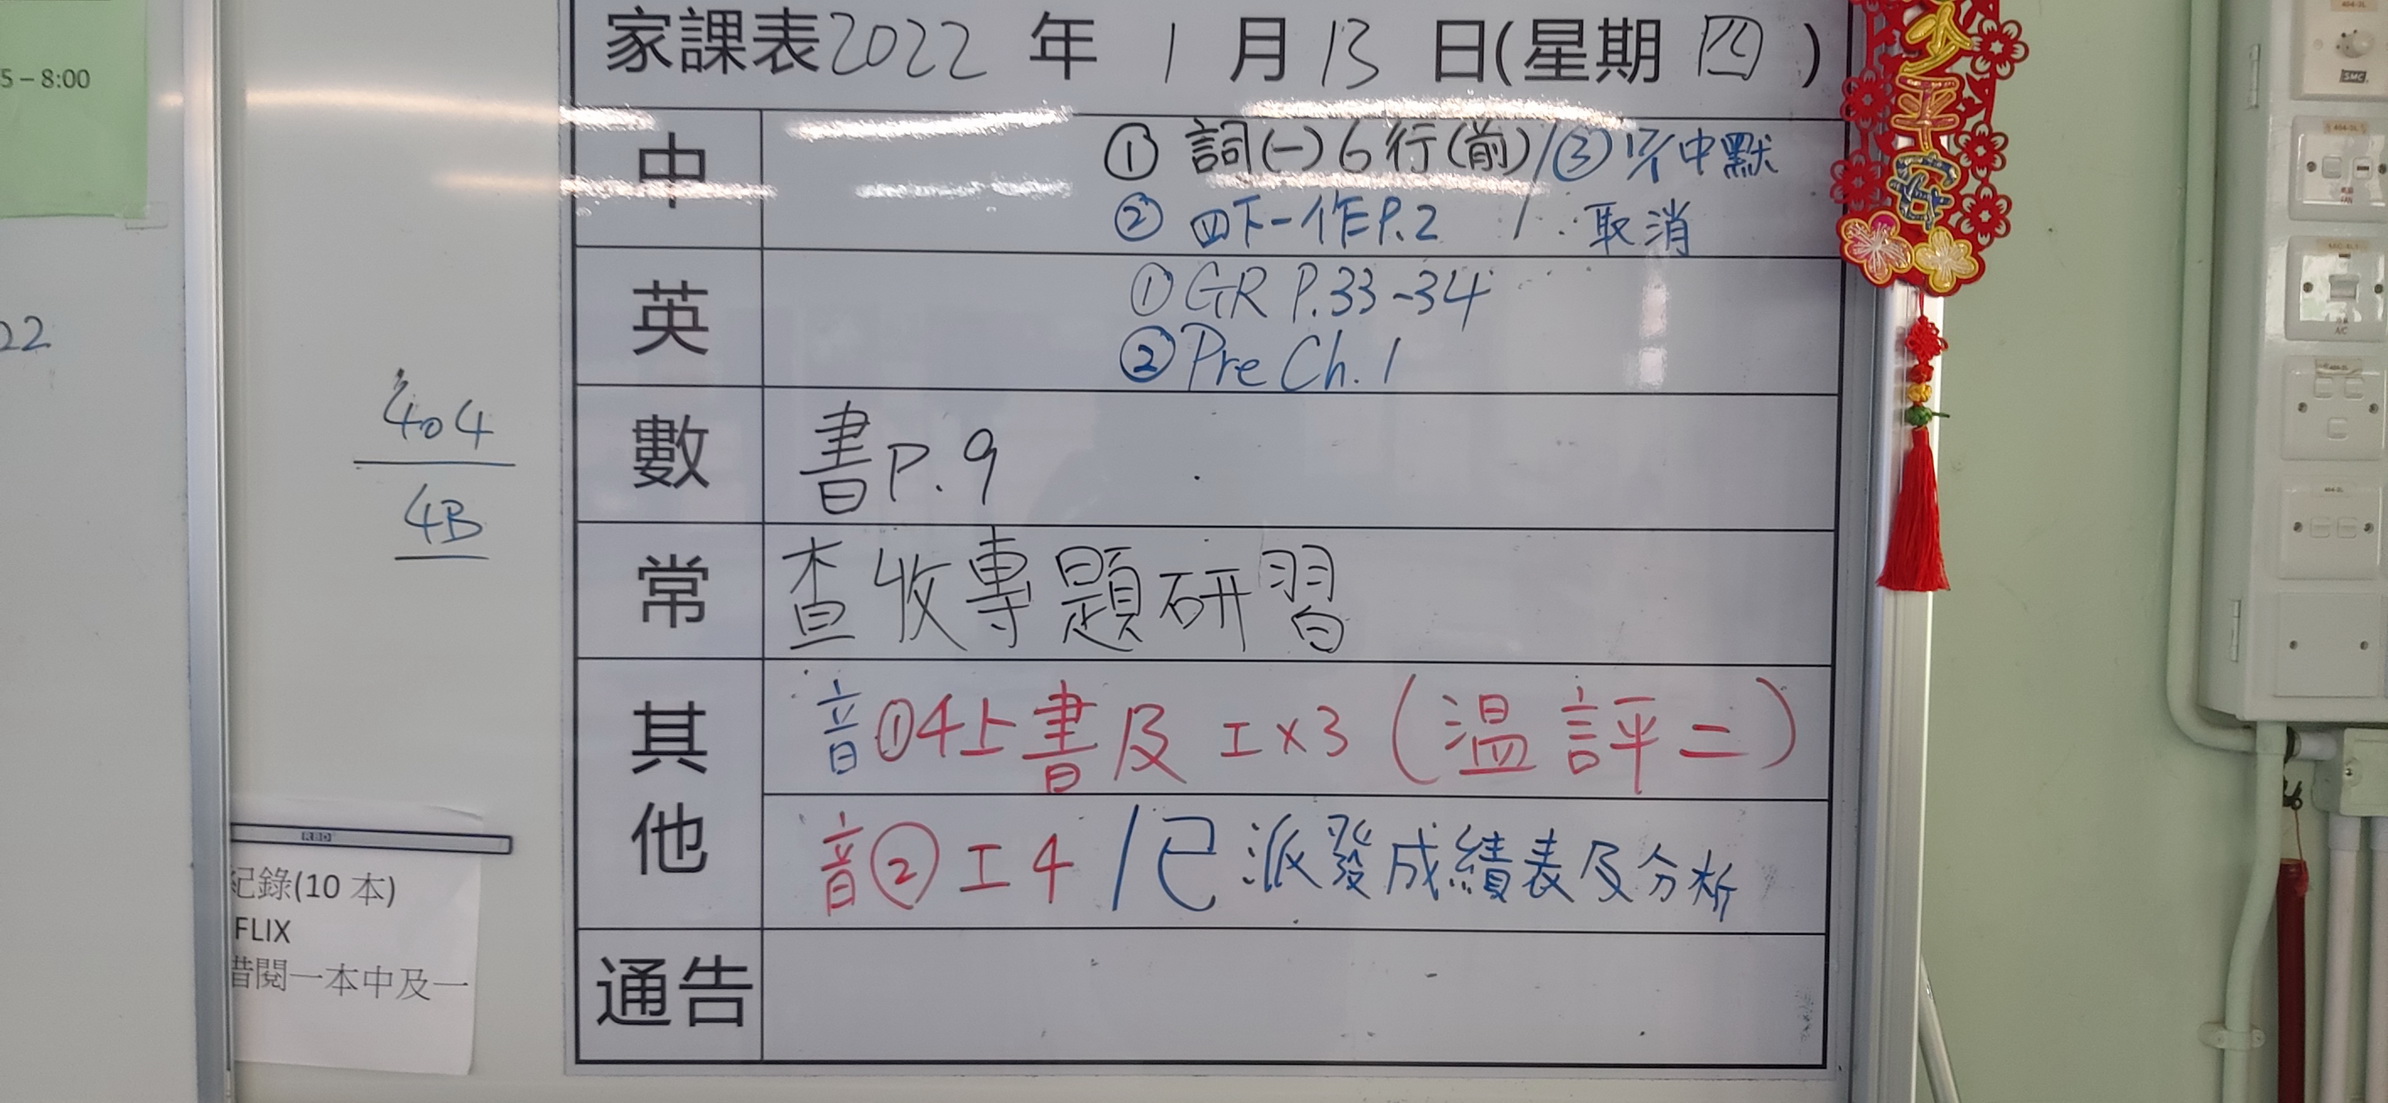 5 – 8:00
22
404
4B
RBD
紀錄(10 本)
FLIX
借閱一本中及一
家課表2022 年 1 月 13 日(星期 四 )
中
① 詞(一) 6 行(前) / ③ 17/1 中默
② 四下一作P.2 / 取消
英
① GR P.33-34
② Pre Ch. 1
數
書P. 9
常
查收專題研習
其他
音①4上書及工x3 (溫評二)
音②工4 /已派發成績表及分析
通告
平安
SMC